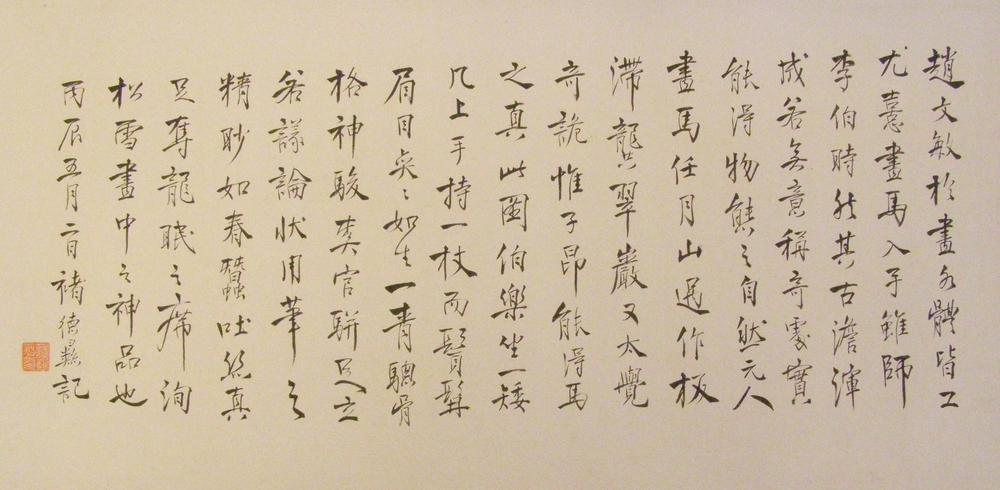 趙文敏於畫各體皆工
尤憙畫馬入手雖師
李伯時然其古澹渾
成若無意稱奇處實
能得物態之自然元人
畫馬任月山迥作板
滯龔翠巖又太覺
奇詭惟子昂能得馬
之真此圖伯樂坐一矮
几上手持一杖而鬢髯
眉目奕〻如生一青驄骨
格神駿奚官駢足立
若議論狀用筆之
精眇如春蠶吐絲真
足奪龍眠之席洵
松雪畫中之神品也
丙辰五月二日褚德彝記